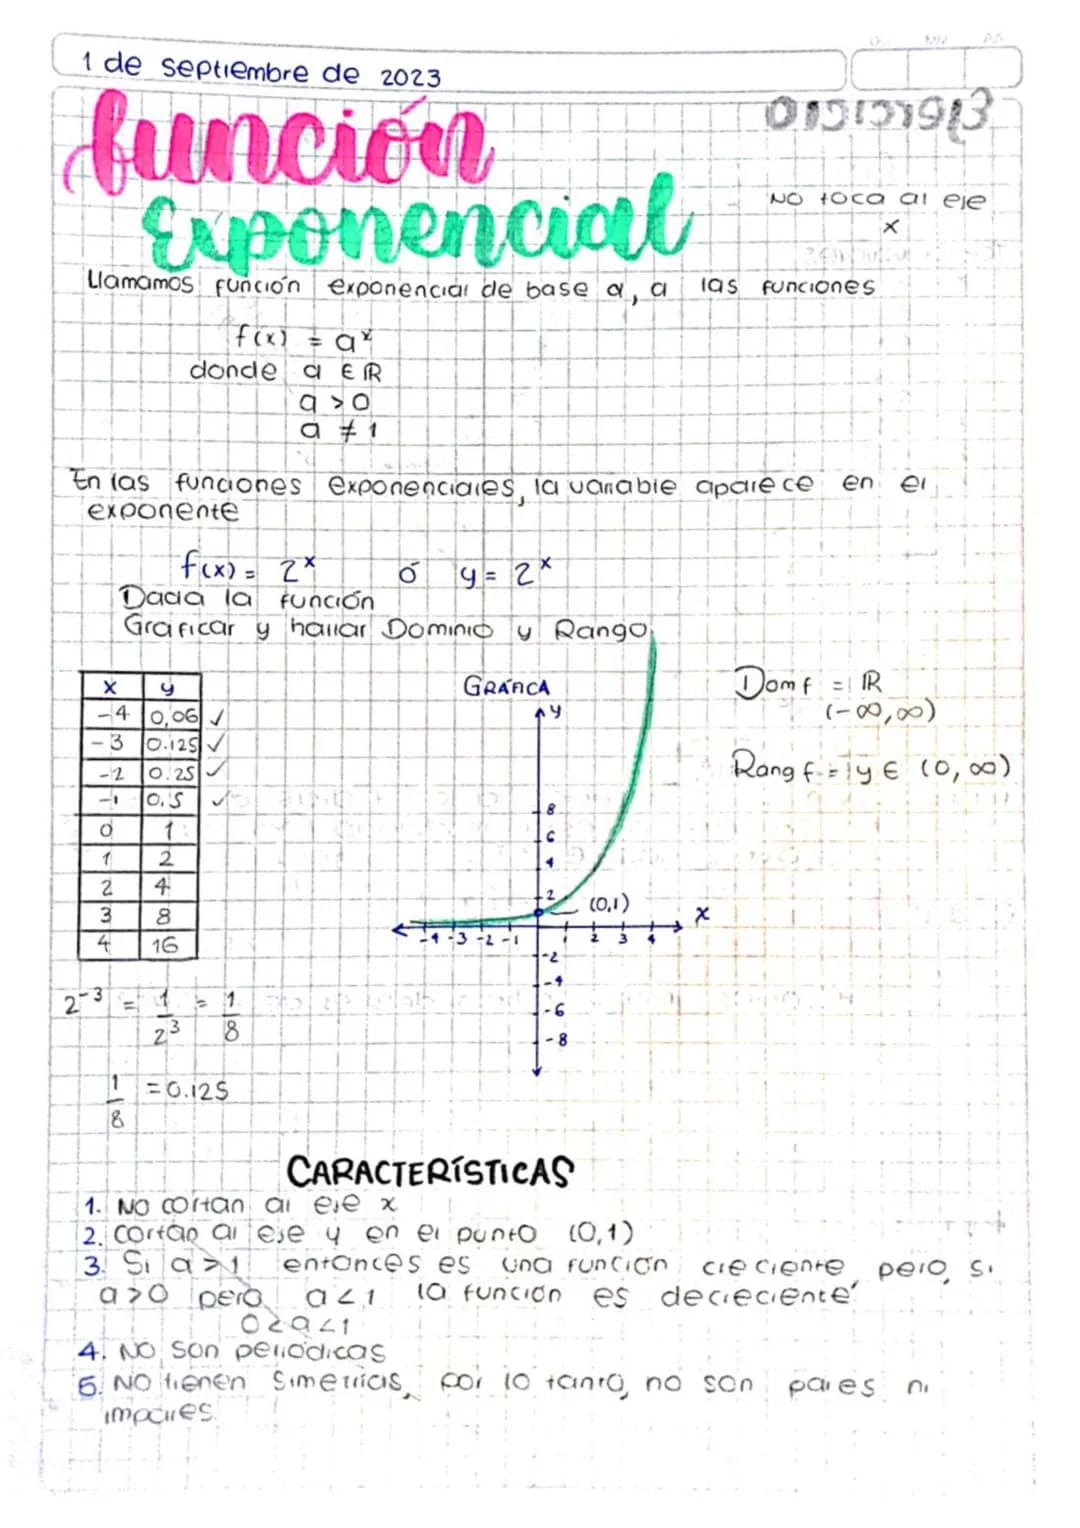 1 de septiembre de 2023
función
Exponencial
No toca al eje
x
Llamamos función exponencial de base a, a las funciones
f(x) = aˣ
donde a ∈ ℝ
a > 0
a ≠ 1
En las funciones exponenciales, la variable aparece en el
exponente
f(x) = 2ˣ ó y = 2ˣ
Dada la función
Graficar y hallar Dominio y Rango
x y
-4 0,06 ✓
-3 0.125 ✓
-2 0.25 ✓
-1 0.5 ✓
0 1
1 2
2 4
3 8
4 16
GRÁFICA
y
8
6
4
2
(0,1)
x
-4 -3 -2 -1 1 2 3 4
-2
-4
-6
-8
Dom f = ℝ
(-∞,∞)
Rang f = y ∈ (0, ∞)
2⁻³ = 1/2³ = 1/8
1/8 = 0.125
CARACTERÍSTICAS
1. No cortan al eje x
2. Cortan al eje y en el punto (0,1)
3. Si a > 1 entonces es una función creciente, pero, si
a > 0 pero a < 1 la función es decreciente
0 < a < 1
4. No son periódicas
5. No tienen simetrías, por lo tanto, no son pares ni
impares.